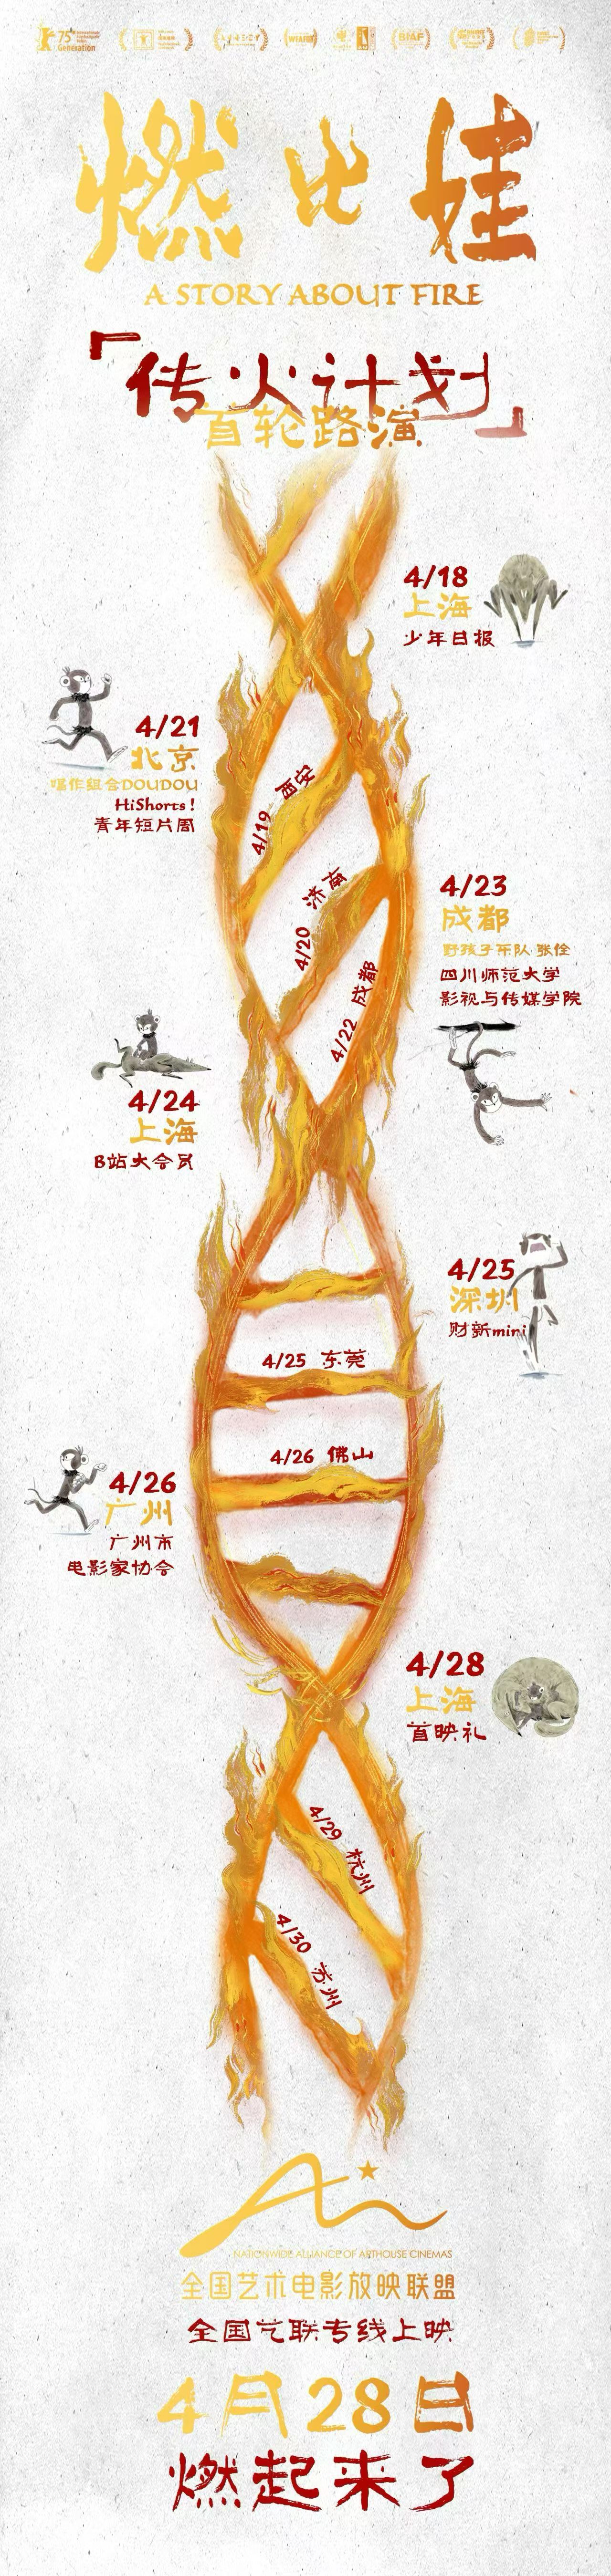 75
Generation
WFAF
BIAF
燃比娃
A STORY ABOUT FIRE
「传火计划」
首轮路演
4/18
上海
少年日报
4/21
北京
唱作组合DOUDOU
HiShorts!
青年短片周
4/19 西安
4/20 济南
4/22 成都
4/23
成都
野孩子乐队·张佺
四川师范大学
影视与传媒学院
4/24
上海
B站大会员
4/25
深圳
财新mini
4/25 东莞
4/26 佛山
4/26
广州
广州市
电影家协会
4/28
上海
首映礼
4/29 杭州
4/30 苏州
NATIONWIDE ALLIANCE OF ARTHOUSE CINEMAS
全国艺术电影放映联盟
全国艺联专线上映
4月28日
燃起来了